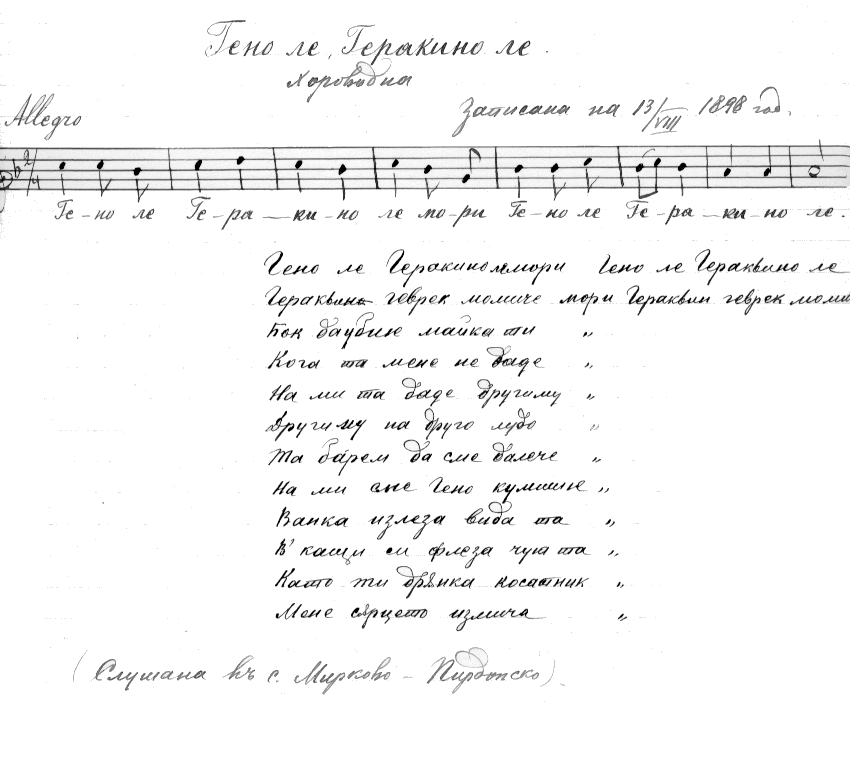 Гено ле, Геракино ле.
Хороводна
Allegro
Записана на 13/VIII 1898 год.
2/4
Ге-но ле Ге-ра-ки-но ле мо-ри Ге-но ле Ге-ра-ки-но ле.
Гено ле Геракино ле мори Гено ле Гераквино ле
Гераквино геврек момиче мори Гераквин геврек моми
Бок майка ти "
Кога та мене не даде "
На ми та даде другиму "
Другиму на друго лудо "
Та барем да сме далече "
На ми сме Гено кумшие "
Вапка излеза вида та "
В' кащи си флеза чуя та "
Като ти дрънка косатник "
Мене сърцето измича "
(Слушана въ с. Мирково - Пирдопско).